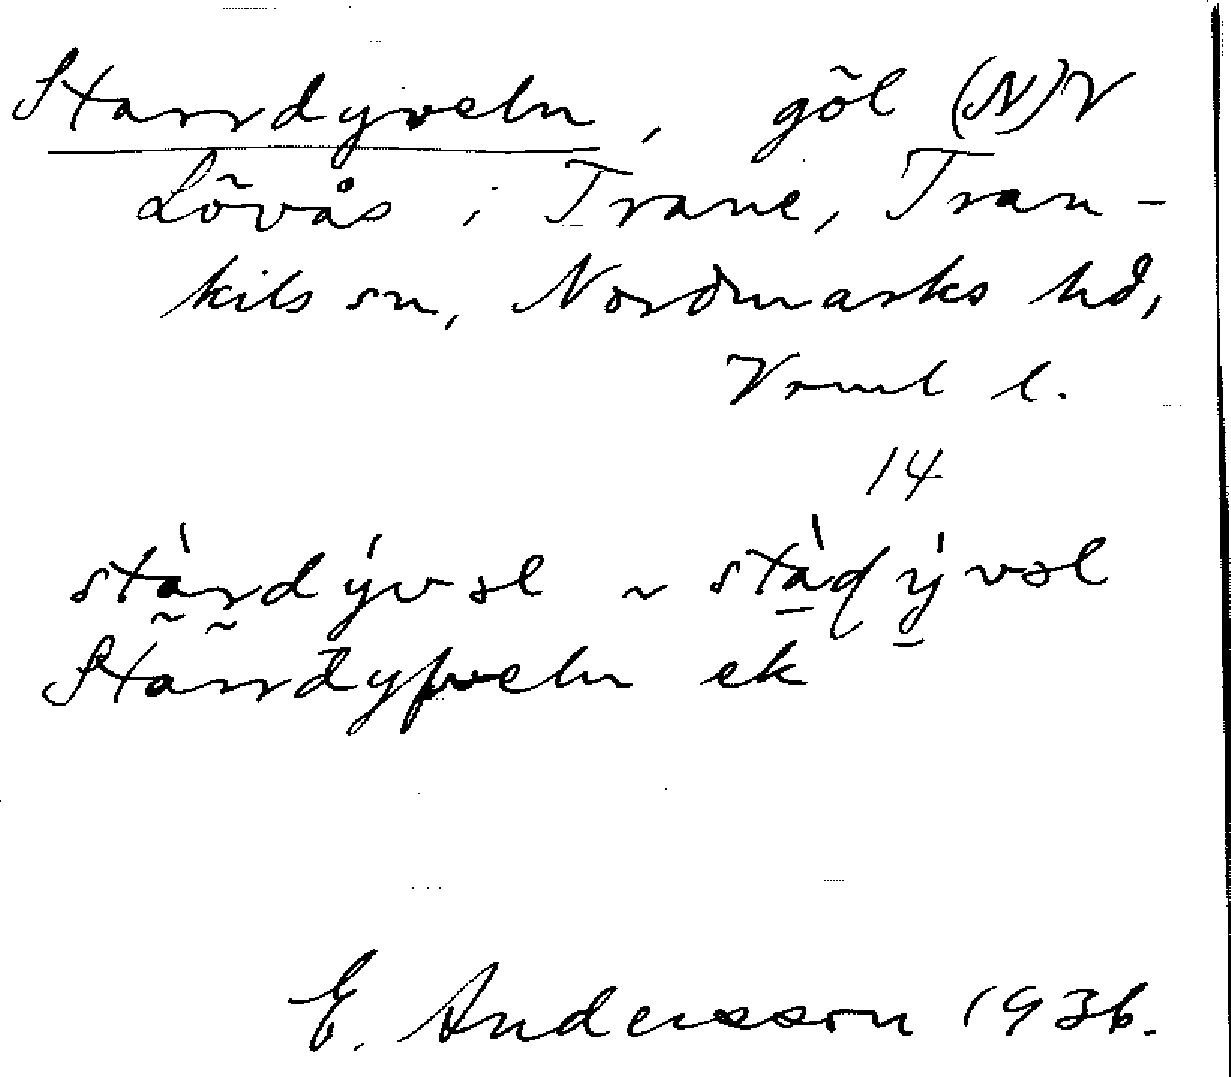 Starrdyveln, göl (N)V
Lövås i Trane, Tran-
kils sn, Nordmarks hd,
Vrml l.
14
stàrdývəl ~ stàdývəl
Starrdypveln ek
E. Andersson 1936.